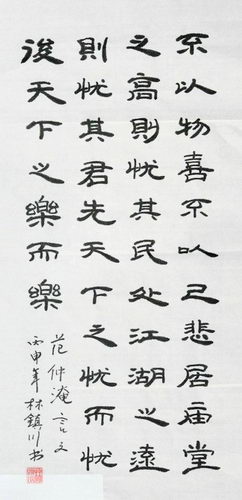 不以物喜不以己悲居庙堂
之高則忧其民处江湖之遠
則忧其君先天下之忧而忧
後天下之樂而樂
范仲淹文
丙申年林鎮川书